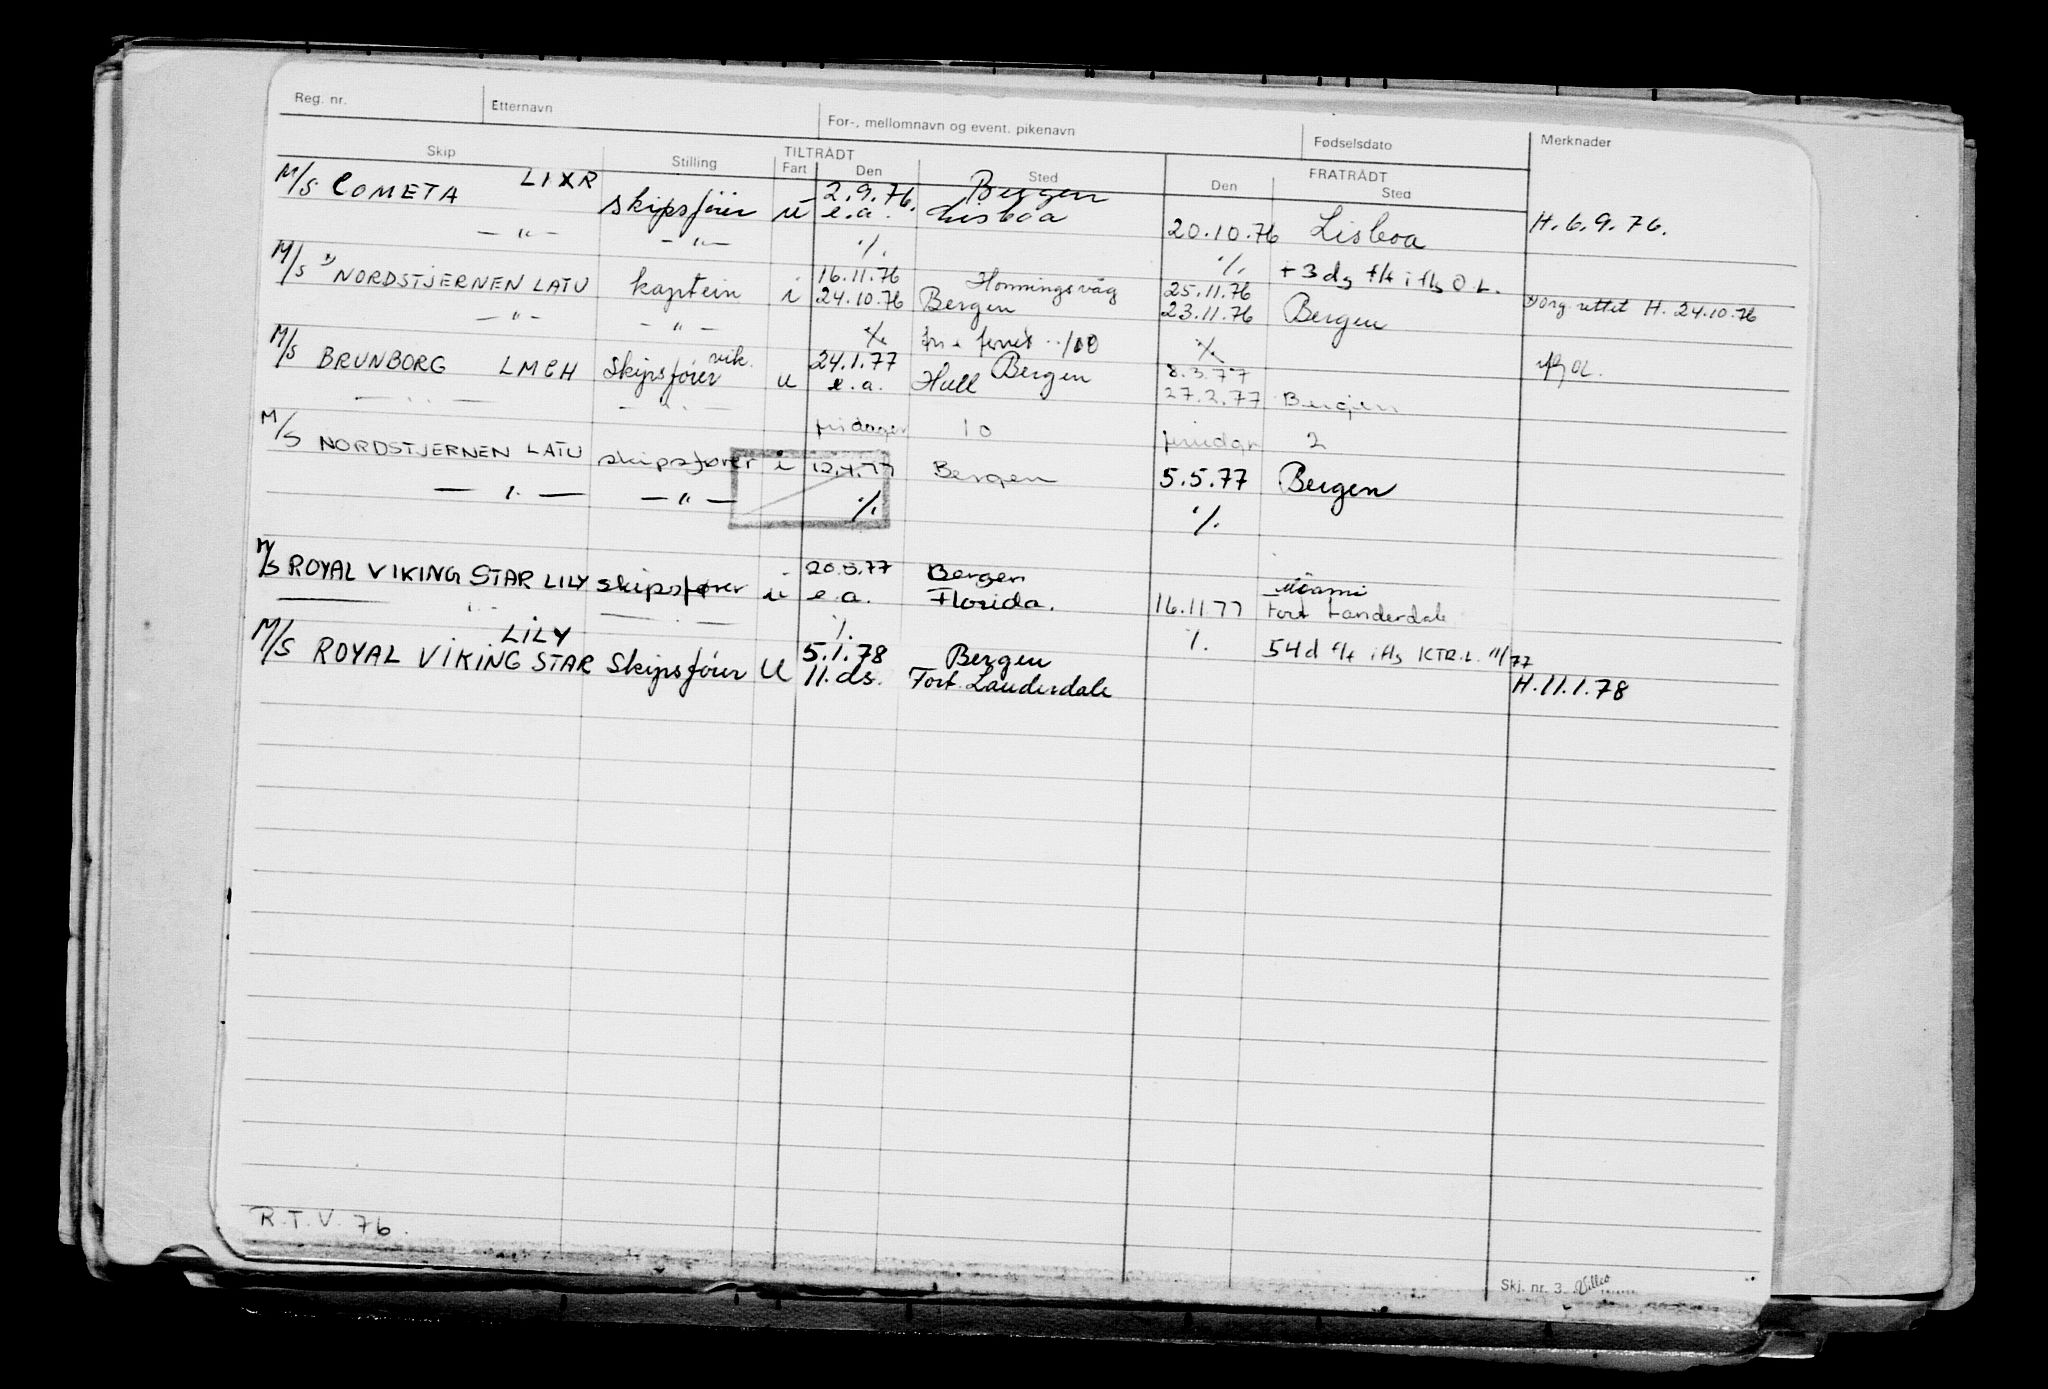 Reg. nr. Etternavn For-, mellomnavn og event. pikenavn Fødselsdato Merknader
Skip Stilling TILTRÅDT FRATRÅDT
Fart Den Sted Den Sted
M/S COMETA LIXR skipsfører u 2.9.76. Bergen
e.a. Lisboa 20.10.76 Lisboa H. 6.9.76.
— " — — " — ./. ./. + 3 dg f/t i flg O.L.
M/S 1) NORDSTJERNEN LATU kaptein i 16.11.76 Honningsvåg 25.11.76
24.10.76 Bergen 23.11.76 Bergen 1) Org. rettet H. 24.10.76
— " — — " — ./. ./.
M/S BRUNBORG LMCH Skipsfører vik. u 24.1.77 Bergen 8.3.77
e.a. Hull 27.2.77 Bergen
— " — — " — fridager 10 2
M/S NORDSTJERNEN LATU skipsfører i 12.4.77 Bergen 5.5.77 Bergen
— " — — " — ./. ./.
M/S ROYAL VIKING STAR LILY skipsfører u 20.5.77 Bergen Miami
e.a. Florida. 16.11.77 Fort Lauderdale
— " — — " — ./. ./. 54 d f/t i flg KTR.L. 11/77
M/S ROYAL VIKING STAR LILY Skipsfører U 5.1.78 Bergen
11. ds. Fort. Lauderdale H. 11.1.78
R.T.V. 76.
Skj. nr. 3.